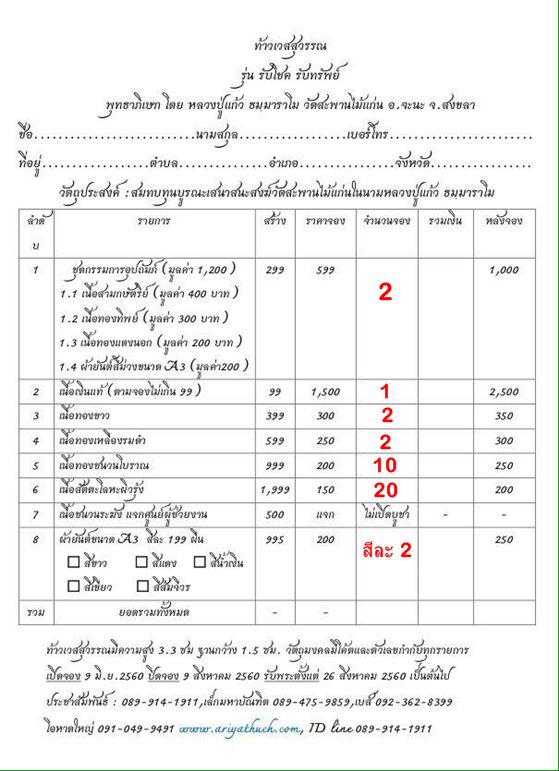 ท้าวเวสสุวรรณ
รุ่น รับโชค รับทรัพย์
พุทธาภิเษก โดย หลวงปู่แก้ว ธมฺมาราโม วัดสะพานไม้แก่น อ.จะนะ จ.สงขลา
ชื่อ...........................นามสกุล......................เบอร์โทร........................
ที่อยู่..................ตำบล...............อำเภอ................จังหวัด.................
วัตถุประสงค์ :สมทบทุนบูรณะเสนาสนะสงฆ์วัดสะพานไม้แก่นในนามหลวงปู่แก้ว ธมฺมาราโม
ลำดับ รายการ สร้าง ราคาจอง จำนวนจอง รวมเงิน หลังจอง
1 ชุดกรรมการอุปถัมภ์ (มูลค่า 1,200 ) 299 599 2 1,000
1.1 เนื้อสามกษัตริย์ (มูลค่า 400 บาท )
1.2 เนื้อทองทิพย์ (มูลค่า 300 บาท )
1.3 เนื้อทองแดงนอก (มูลค่า 200 บาท )
1.4 ผ้ายันต์สีม่วงขนาด A3 (มูลค่า200 )
2 เนื้อเงินแท้ (ตามจองไม่เกิน 99 ) 99 1,500 1 2,500
3 เนื้อทองขาว 399 300 2 350
4 เนื้อทองเหลืองรมดำ 599 250 2 300
5 เนื้อทองชนวนโบราณ 999 200 10 250
6 เนื้อสัตตะโลหะผิวรุ้ง 1,999 150 20 200
7 เนื้อชนวนระฆัง แจกศูนย์ผู้ช่วยงาน 500 แจก ไม่เปิดบูชา - -
8 ผ้ายันต์ขนาด A3 สีละ 199 ผืน 995 200 สีละ 2 250
สีขาว สีแดง สีน้ำเงิน
สีเขียว สีส้มจีวร
รวม ยอดรวมทั้งหมด - -
ท้าวเวสสุวรรณมีความสูง 3.3 ซม ฐานกว้าง 1.5 ซม. วัตถุมงคลมีโค๊ตและตัวเลขกำกับทุกรายการ
เปิดจอง 9 มิ.ย.2560 ปิดจอง 9 สิงหาคม 2560 รับพระตั้งแต่ 26 สิงหาคม 2560 เป็นต้นไป
ประชาสัมพันธ์ : 089-914-1911,เล็กมหาบัณฑิต 089-475-9859,เบส์ 092-362-8399
โอหาดใหญ่ 091-049-9491 www.ariyathuch.com, ID line 089-914-1911